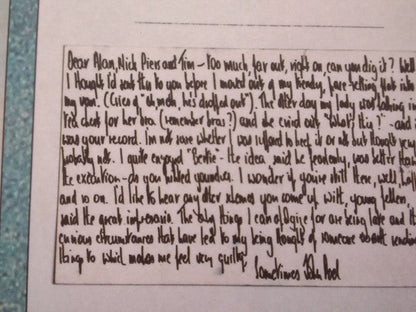 Dear Alan, Nick Piers and Tim – Too much, far out, right on, can you dig it? Well
I thought I'd send this to you before I moved out of my trendy, pace-setting flat into
my van. (Cries of "oh, man, he's dropped out"). The other day my lady was looking in
tea chest for her bra (remember bras?) and she cried out "What's this?" – and it
was your record. I'm not sure whether I was supposed to keep it or not but thought
probably not. I quite enjoyed "Bertie" – the idea, said he pedantically, was better than
the execution – as you hinted yourselves. I wonder if you're still there, well
and so on. I'd like to hear any other schemes you come up with, young fellow
said the great impresario. The only thing I can apologise for are being late and the
curious circumstances that have led to my being thought of someone to
things to which makes me feel very guilty.
Sometimes John Peel